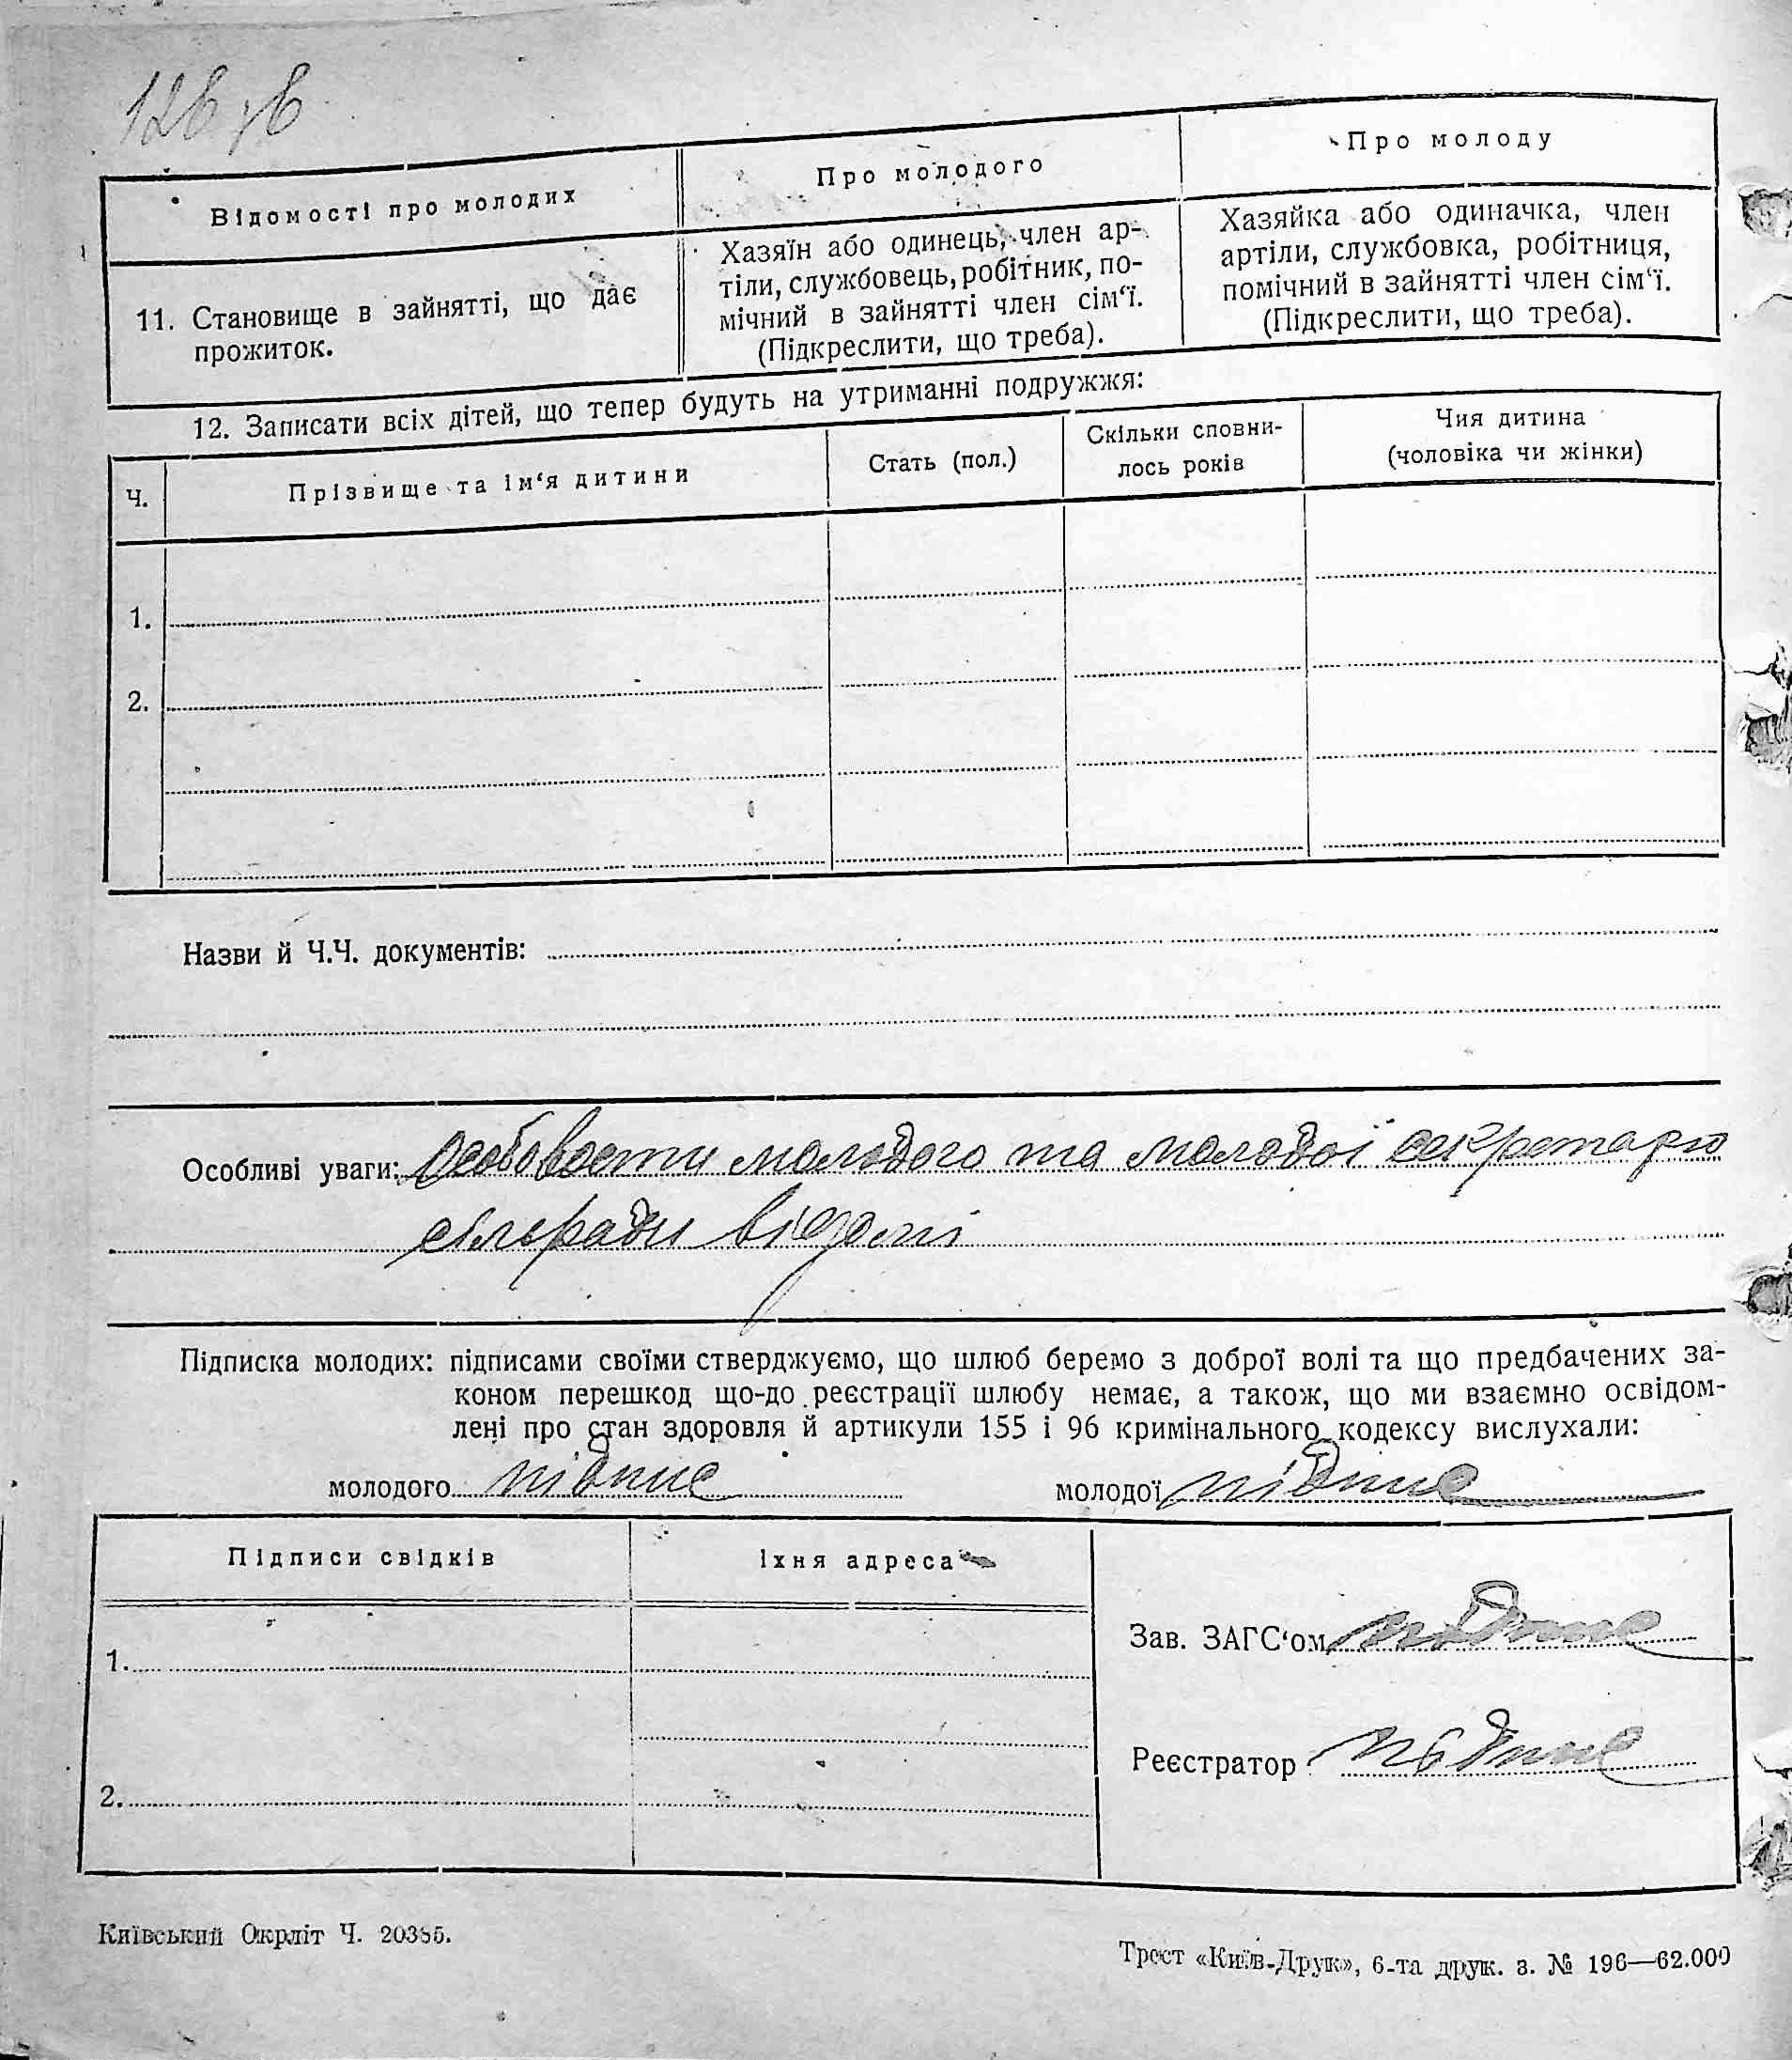 128 зв
Відомості про молодих
Про молодого
Про молоду
11. Становище в зайнятті, що дає
прожиток.
Хазяїн або одинець, член ар-
тіли, службовець, робітник, по-
мічний в зайнятті член сім‘ї.
(Підкреслити, що треба).
Хазяйка або одиначка, член
артіли, службовка, робітниця,
помічний в зайнятті член сім‘ї.
(Підкреслити, що треба).
12. Записати всіх дітей, що тепер будуть на утриманні подружжя:
Ч.
Прізвище та ім‘я дитини
Стать (пол.)
Скільки сповни-
лось років
Чия дитина
(чоловіка чи жінки)
1.
2.
Назви й Ч.Ч. документів:
Особливі уваги: особовости молодого та молодої секретарю
сільради відомі
Підписка молодих: підписами своїми стверджуємо, що шлюб беремо з доброї волі та що предбачених за-
коном перешкод що-до реєстрації шлюбу немає, а також, що ми взаємно освідом-
лені про стан здоровля й артикули 155 і 96 кримінального кодексу вислухали:
молодого підпис молодої підпис
Підписи свідків
Їхня адреса
1.
2.
Зав. ЗАГС‘ом підпис
Реєстратор підпис
Київський Окрліт Ч. 20385.
Трест «Київ-Друк», 6-та друк. з. № 196—62.000